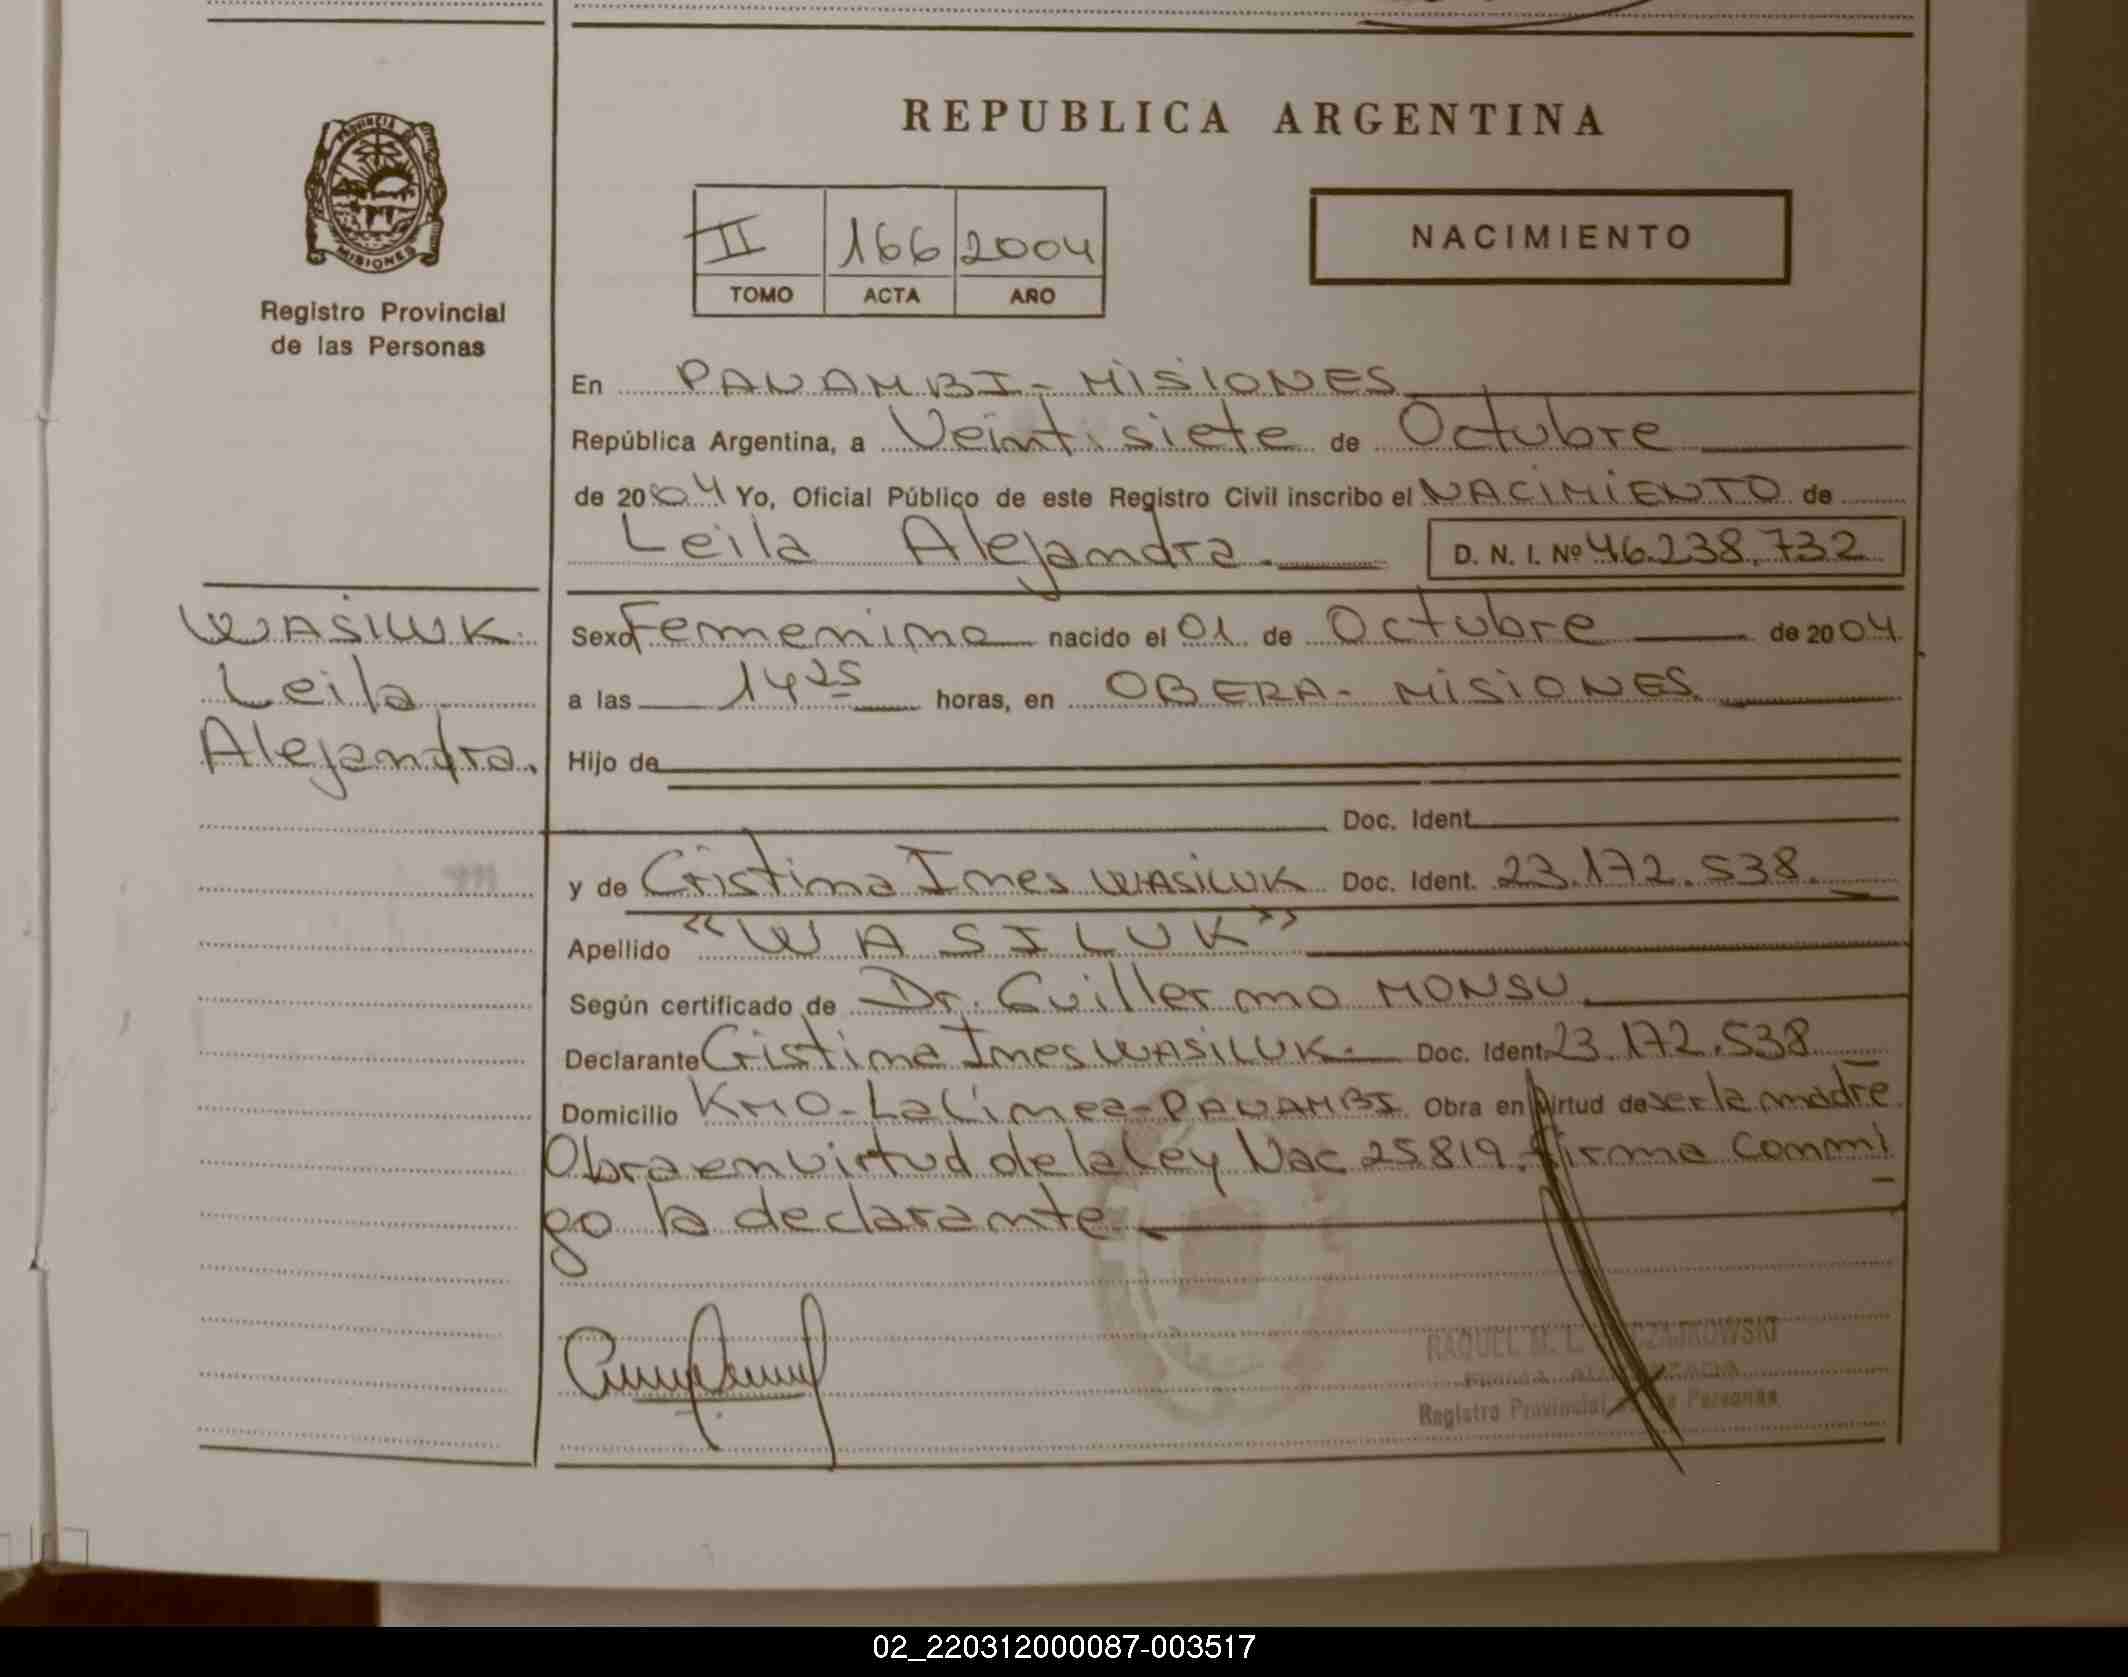 PROVINCIA DE
MISIONES
Registro Provincial
de las Personas
REPUBLICA ARGENTINA
II 166 2004
TOMO ACTA AÑO
NACIMIENTO
En PANAMBI - MISIONES
República Argentina, a Veintisiete de Octubre
de 2004 Yo, Oficial Público de este Registro Civil inscribo el NACIMIENTO de
Leila Alejandra.
D. N. I. Nº 46.238.732
WASILUK.
Leila
Alejandra.
Sexo Femenino nacido el 01 de Octubre de 2004
a las 14 25 horas, en OBERA - MISIONES
Hijo de
Doc. Ident.
y de Cristina Ines WASILUK Doc. Ident. 23.172.538.
Apellido "WASILUK"
Según certificado de Dr. Guillermo MONSU
Declarante Cristina Ines WASILUK.- Doc. Ident. 23.172.538
Domicilio KM 0 - La Linea - PANAMBI Obra en virtud de ser la madre
Obra en virtud de la Ley Nac 25819. firma conmi
go la declarante.
RAQUEL M. L.
Registro Provincial Personas
02_220312000087-003517